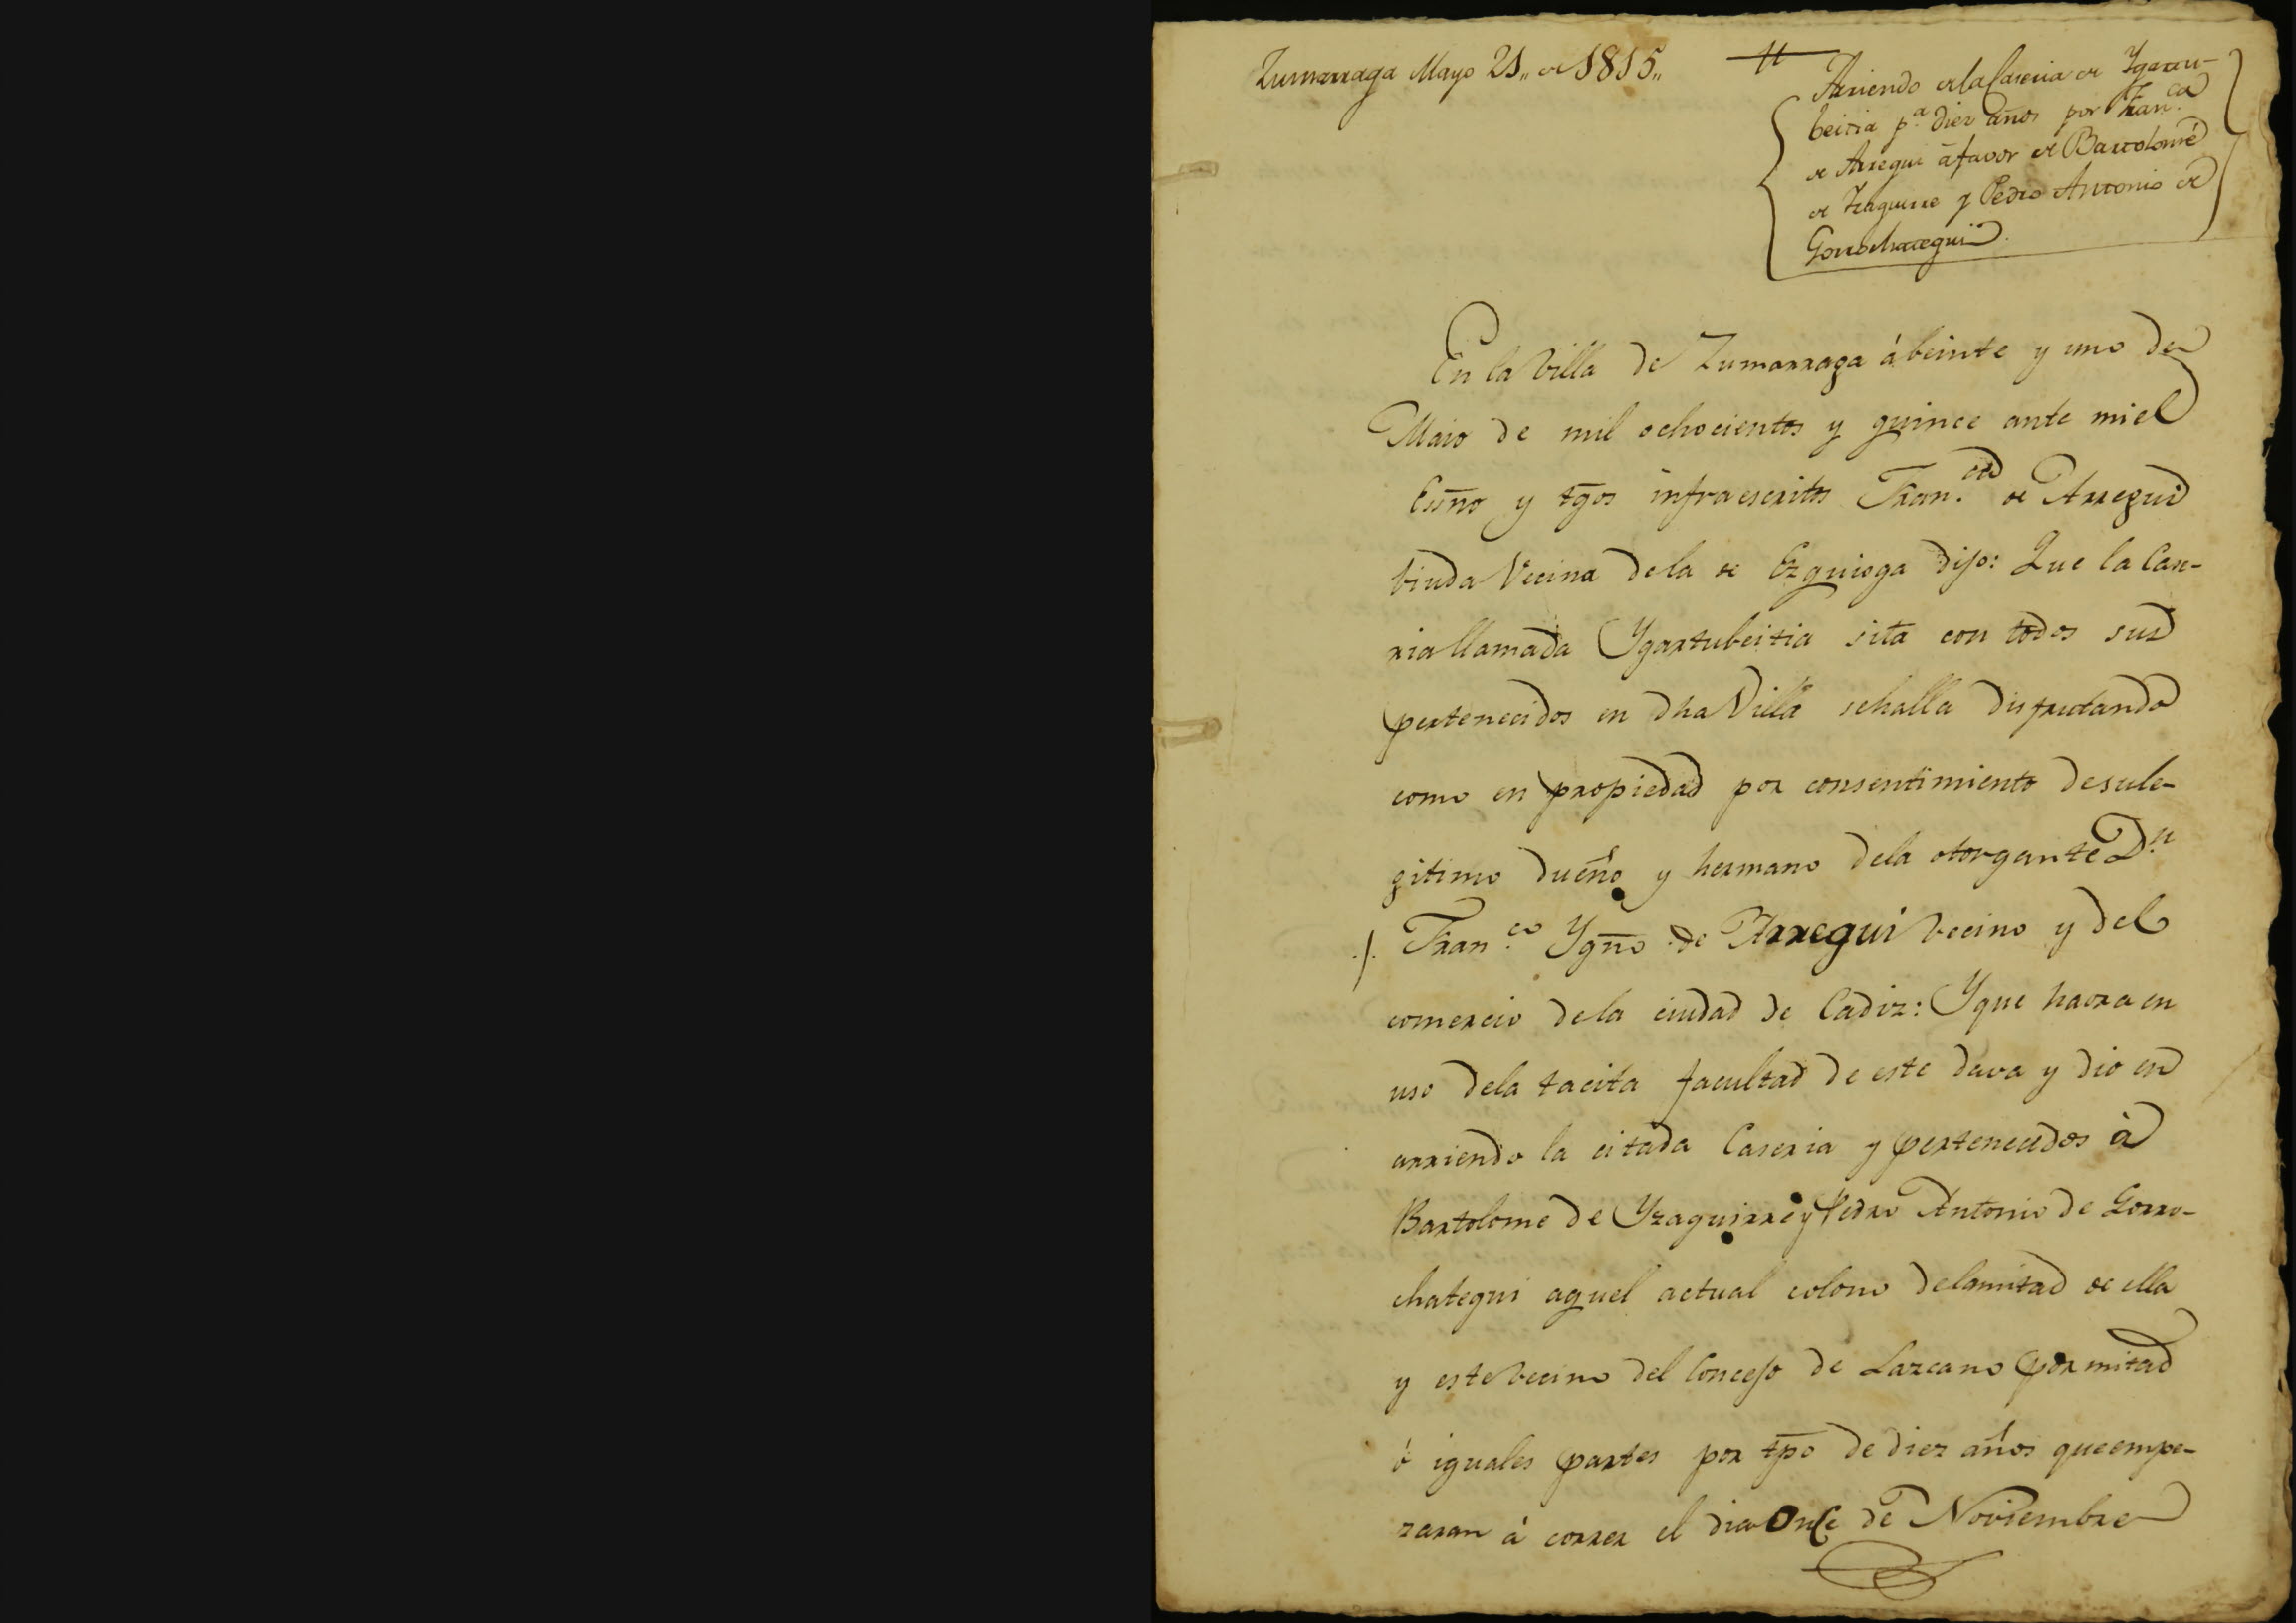 Zumarraga Mayo 21,, de 1815,,
Arriendo de la Caseria de Ygartu-
beitia p.ª diez años por Fran.ca
de Arregui á favor de Bartolomé
de Yzaguirre y Pedro Antonio de
Gorrochategui.
En la Villa de Zumarraga á beinte y uno de
Maio de mil ochocientos y quince ante mi el
Essno y tgos infraescritos Fran.ca de Arregui
biuda Vecina dela de Ezquioga dijo: Que la Case-
ria llamada Ygartubeitia sita con todos sus
pertenecidos en dha Villa sehalla disfrutando
como en propiedad por consentimiento desule-
gitimo dueño y hermano dela otorgante Dn
./. Fran.co Ygno de Arregui vecino y del
comercio dela ciudad de Cadiz: Yque haora en
uso dela tacita facultad de este dava y dio en
arriendo la citada Caseria y pertenecidos á
Bartolome de Yzaguirre y Pedro Antonio de Gorro-
chategui aquel actual colono delamitad de ella
y este vecino del Concejo de Lazcano por mitad
ó iguales partes por tpo de diez años queempe-
zaran á correr el dia Once de Noviembre